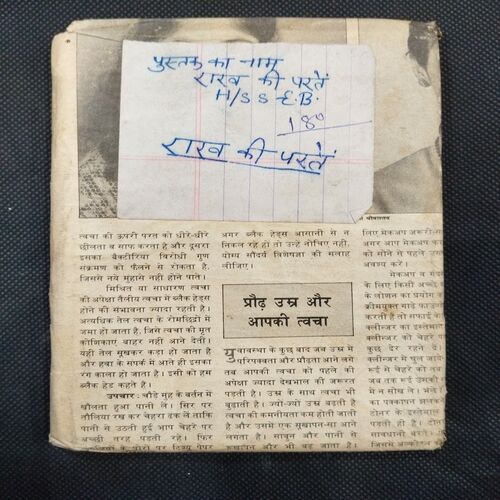 पुस्तक का नाम
राख की परतें
H/SS E.B.
180
राख की परतें
त्वचा की ऊपरी परत को धीरे-धीरे
छीलता व साफ करता है और दूसरा
इसका बैक्टीरिया विरोधी गुण
संक्रमण को फैलने से रोकता है,
जिससे नये मुंहासे नहीं होने पाते।
मिश्रित या साधारण त्वचा
की अपेक्षा तैलीय त्वचा में ब्लैक हेड्स
होने की संभावना ज्यादा रहती है।
अत्यधिक तेल त्वचा के रोमछिद्रों में
जमा हो जाता है, जिसे त्वचा की मृत
कोशिकाएं बाहर नहीं आने देतीं।
यही तेल सूखकर कड़ा हो जाता है
और हवा के संपर्क में आते ही इसका
रंग काला हो जाता है। इसी को हम
ब्लैक हेड कहते हैं।
उपचार: चौड़े मुंह के बर्तन में
खौलता हुआ पानी लें। सिर पर
तौलिया रख कर चेहरा ढक लें ताकि
पानी से उठती हुई भाप चेहरे पर
अच्छी तरह पड़ती रहे। फिर
अगर ब्लैक हेड्स आसानी से न
निकल रहे हों तो उन्हें नोचिए नहीं,
योग्य सौंदर्य विशेषज्ञा की सलाह
लीजिए।
प्रौढ़ उम्र और
आपकी त्वचा
युवावस्था के कुछ बाद जब उम्र में
परिपक्वता और प्रौढ़ता आने लगे
तब आपकी त्वचा को पहले की
अपेक्षा ज्यादा देखभाल की जरूरत
पड़ती है। उम्र के साथ त्वचा भी
बुढ़ाती है। ज्यों-ज्यों उम्र बढ़ती है
त्वचा की कमनीयता कम होती जाती
है और उसमें एक सूखापन-सा आने
लगता है। साबुन और पानी से
सूखापन और भी बढ़ जाता है।
लिए मेकअप
अगर आप मेकअप
को सोने से पहले
अवश्य करें।
मेकअप व
के लिए किसी अच्छे
के लोशन का प्रयोग
करती हैं तो सफाई के
क्लींजर का इस्तेमाल
क्लींजर को चेहरे
कुछ देर रहने दें।
क्लींजर में घुल जाये
रूई से चेहरे को
जब तक रूई उसकी
में न सोख ले।
का पक्कापन
टोनर के इस्तेमाल
पड़ती ही है।
सावधानी बरतें।